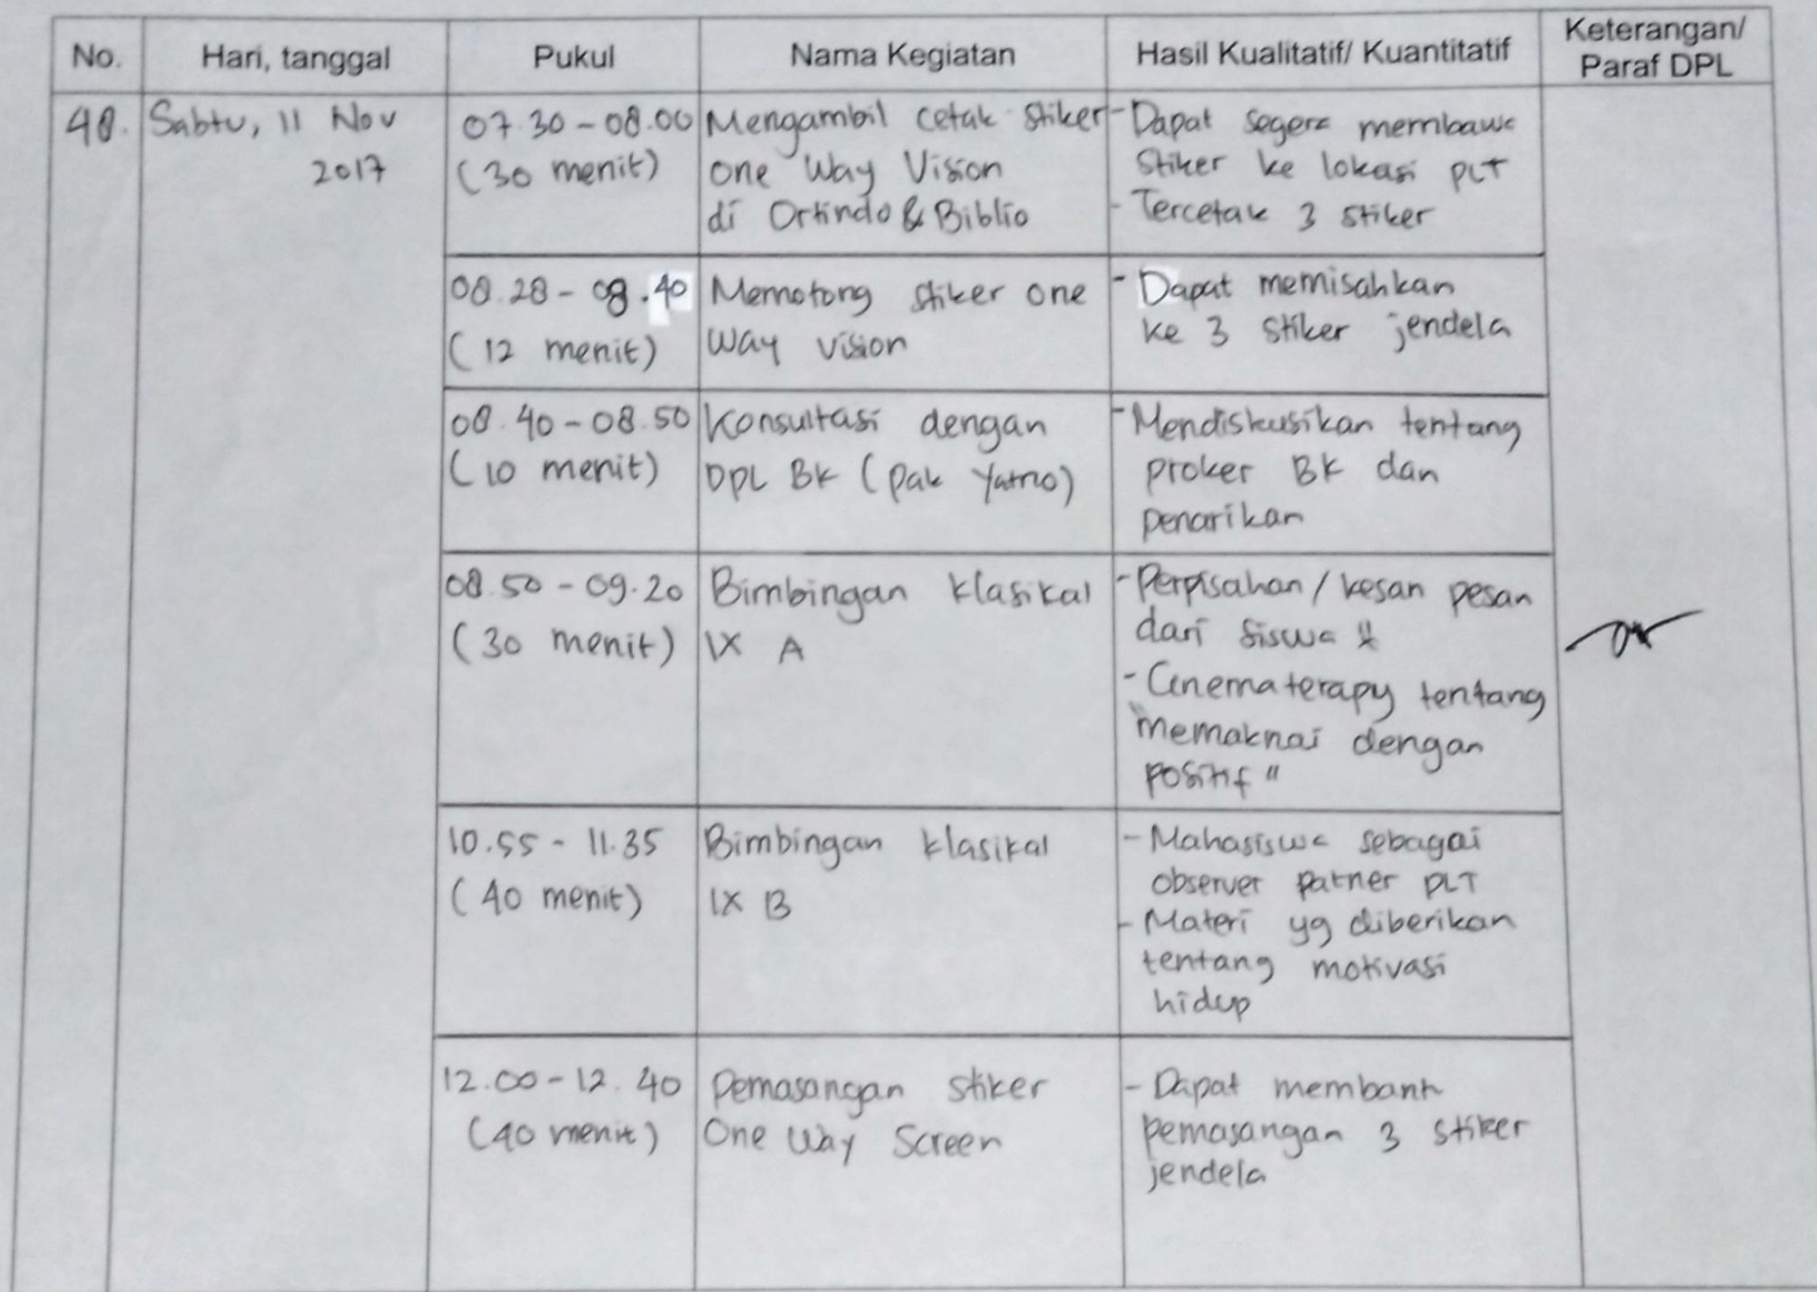 No.
Hari, tanggal
Pukul
Nama Kegiatan
Hasil Kualitatif/ Kuantitatif
Keterangan/
Paraf DPL
48.
Sabtu, 11 Nov
2017
07.30 - 08.00
(30 menit)
Mengambil cetak stiker
one Way Vision
di Ortindo & Biblio
- Dapat segera membawa
stiker ke lokasi PLT
- Tercetak 3 stiker
08.28 - 08.40
(12 menit)
Memotong stiker one
way vision
- Dapat memisahkan
ke 3 stiker jendela
08.40 - 08.50
(10 menit)
Konsultasi dengan
DPL BK (Pak Yatno)
- Mendiskusikan tentang
proker BK dan
penarikan
08.50 - 09.20
(30 menit)
Bimbingan klasikal
IX A
- Perpisahan / kesan pesan
dari siswa
- Cinematerapy tentang
"memaknai dengan
positif"
10.55 - 11.35
(40 menit)
Bimbingan klasikal
IX B
- Mahasiswa sebagai
observer patner PLT
- Materi yg diberikan
tentang motivasi
hidup
12.00 - 12.40
(40 menit)
Pemasangan stiker
One Way Screen
- Dapat membantu
pemasangan 3 stiker
jendela